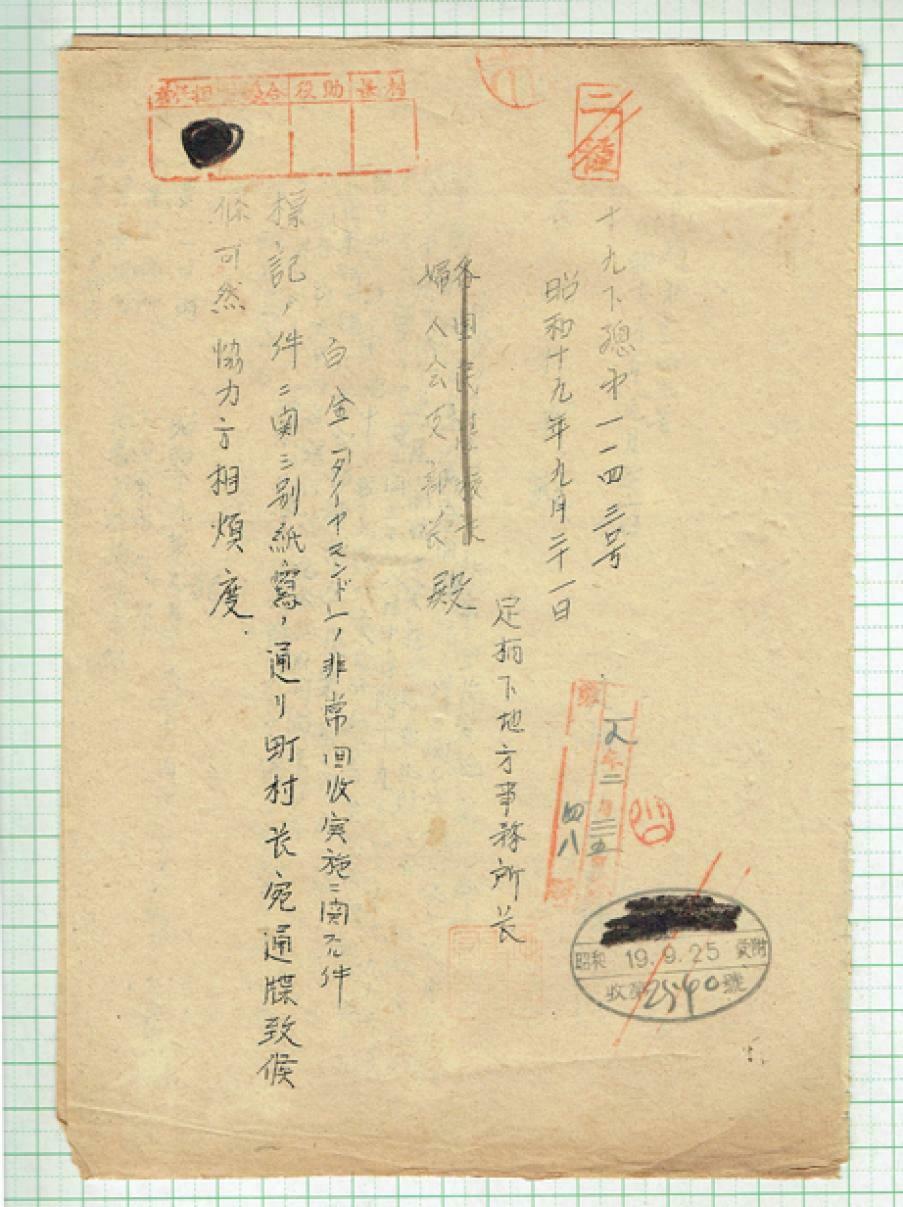 十九下総第一一四三号
昭和十九年九月二十一日
足柄下地方事務所長
各国民学校長
婦人会支部長 殿
白金、(ダイヤモンド)、非常回収実施ニ関スル件
標記ノ件ニ関シ別紙寫ノ通リ町村長宛通牒致候
條可然協力方相煩度
助役
昭和 19.9.25 受附
收第2540號